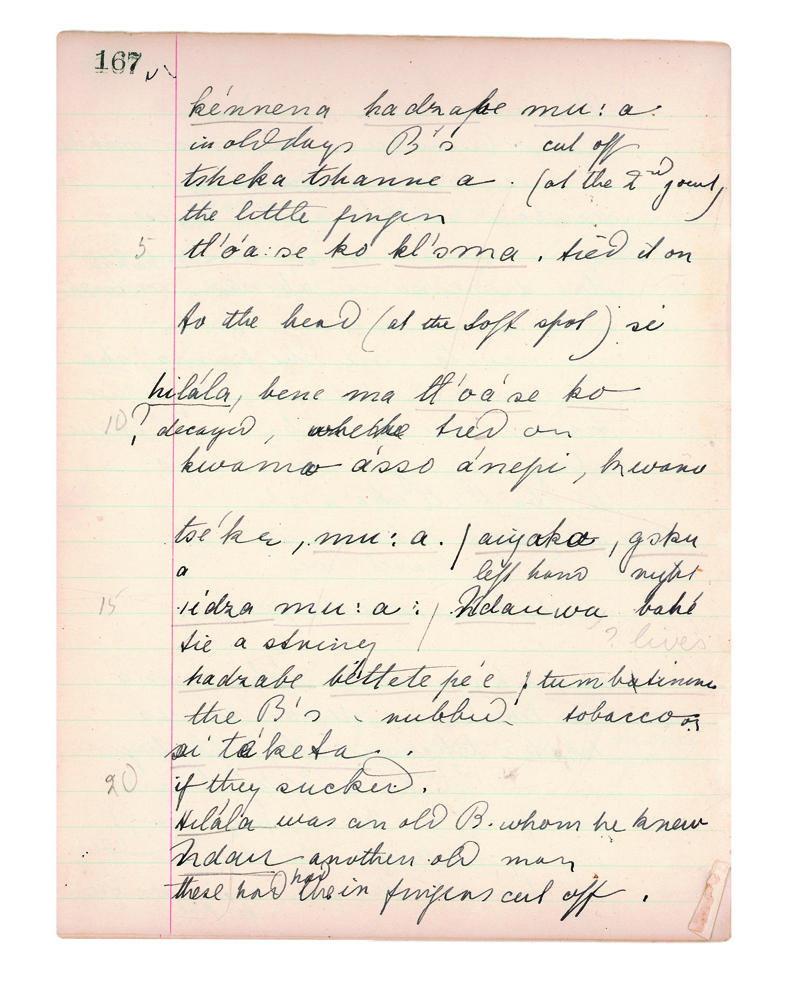 167
kénnena hadzabe mu: a.
in old days B's cut off
tsheka tshanne a . (at the 2nd joint)
the little finger
5 tl'óa: se ko kl'sma . tied it on
to the head (at the soft spot) si
hilála, bene ma tl'oá'se ko
10 ? decayed, tied on
kwama ásso ánepi, kwana
tséke, mu: a. / aiyaka, gsku
a left hand right
15 iédza mu: a: / Ndauwa bahé
tie a string ? lives
hadzabe bettete pé e / tumbatinine
the B's rubbed tobacco on
si táketa .
20 if they sucked.
Hilála was an old B. whom he knew
Ndau another old man
these had had their fingers cut off .